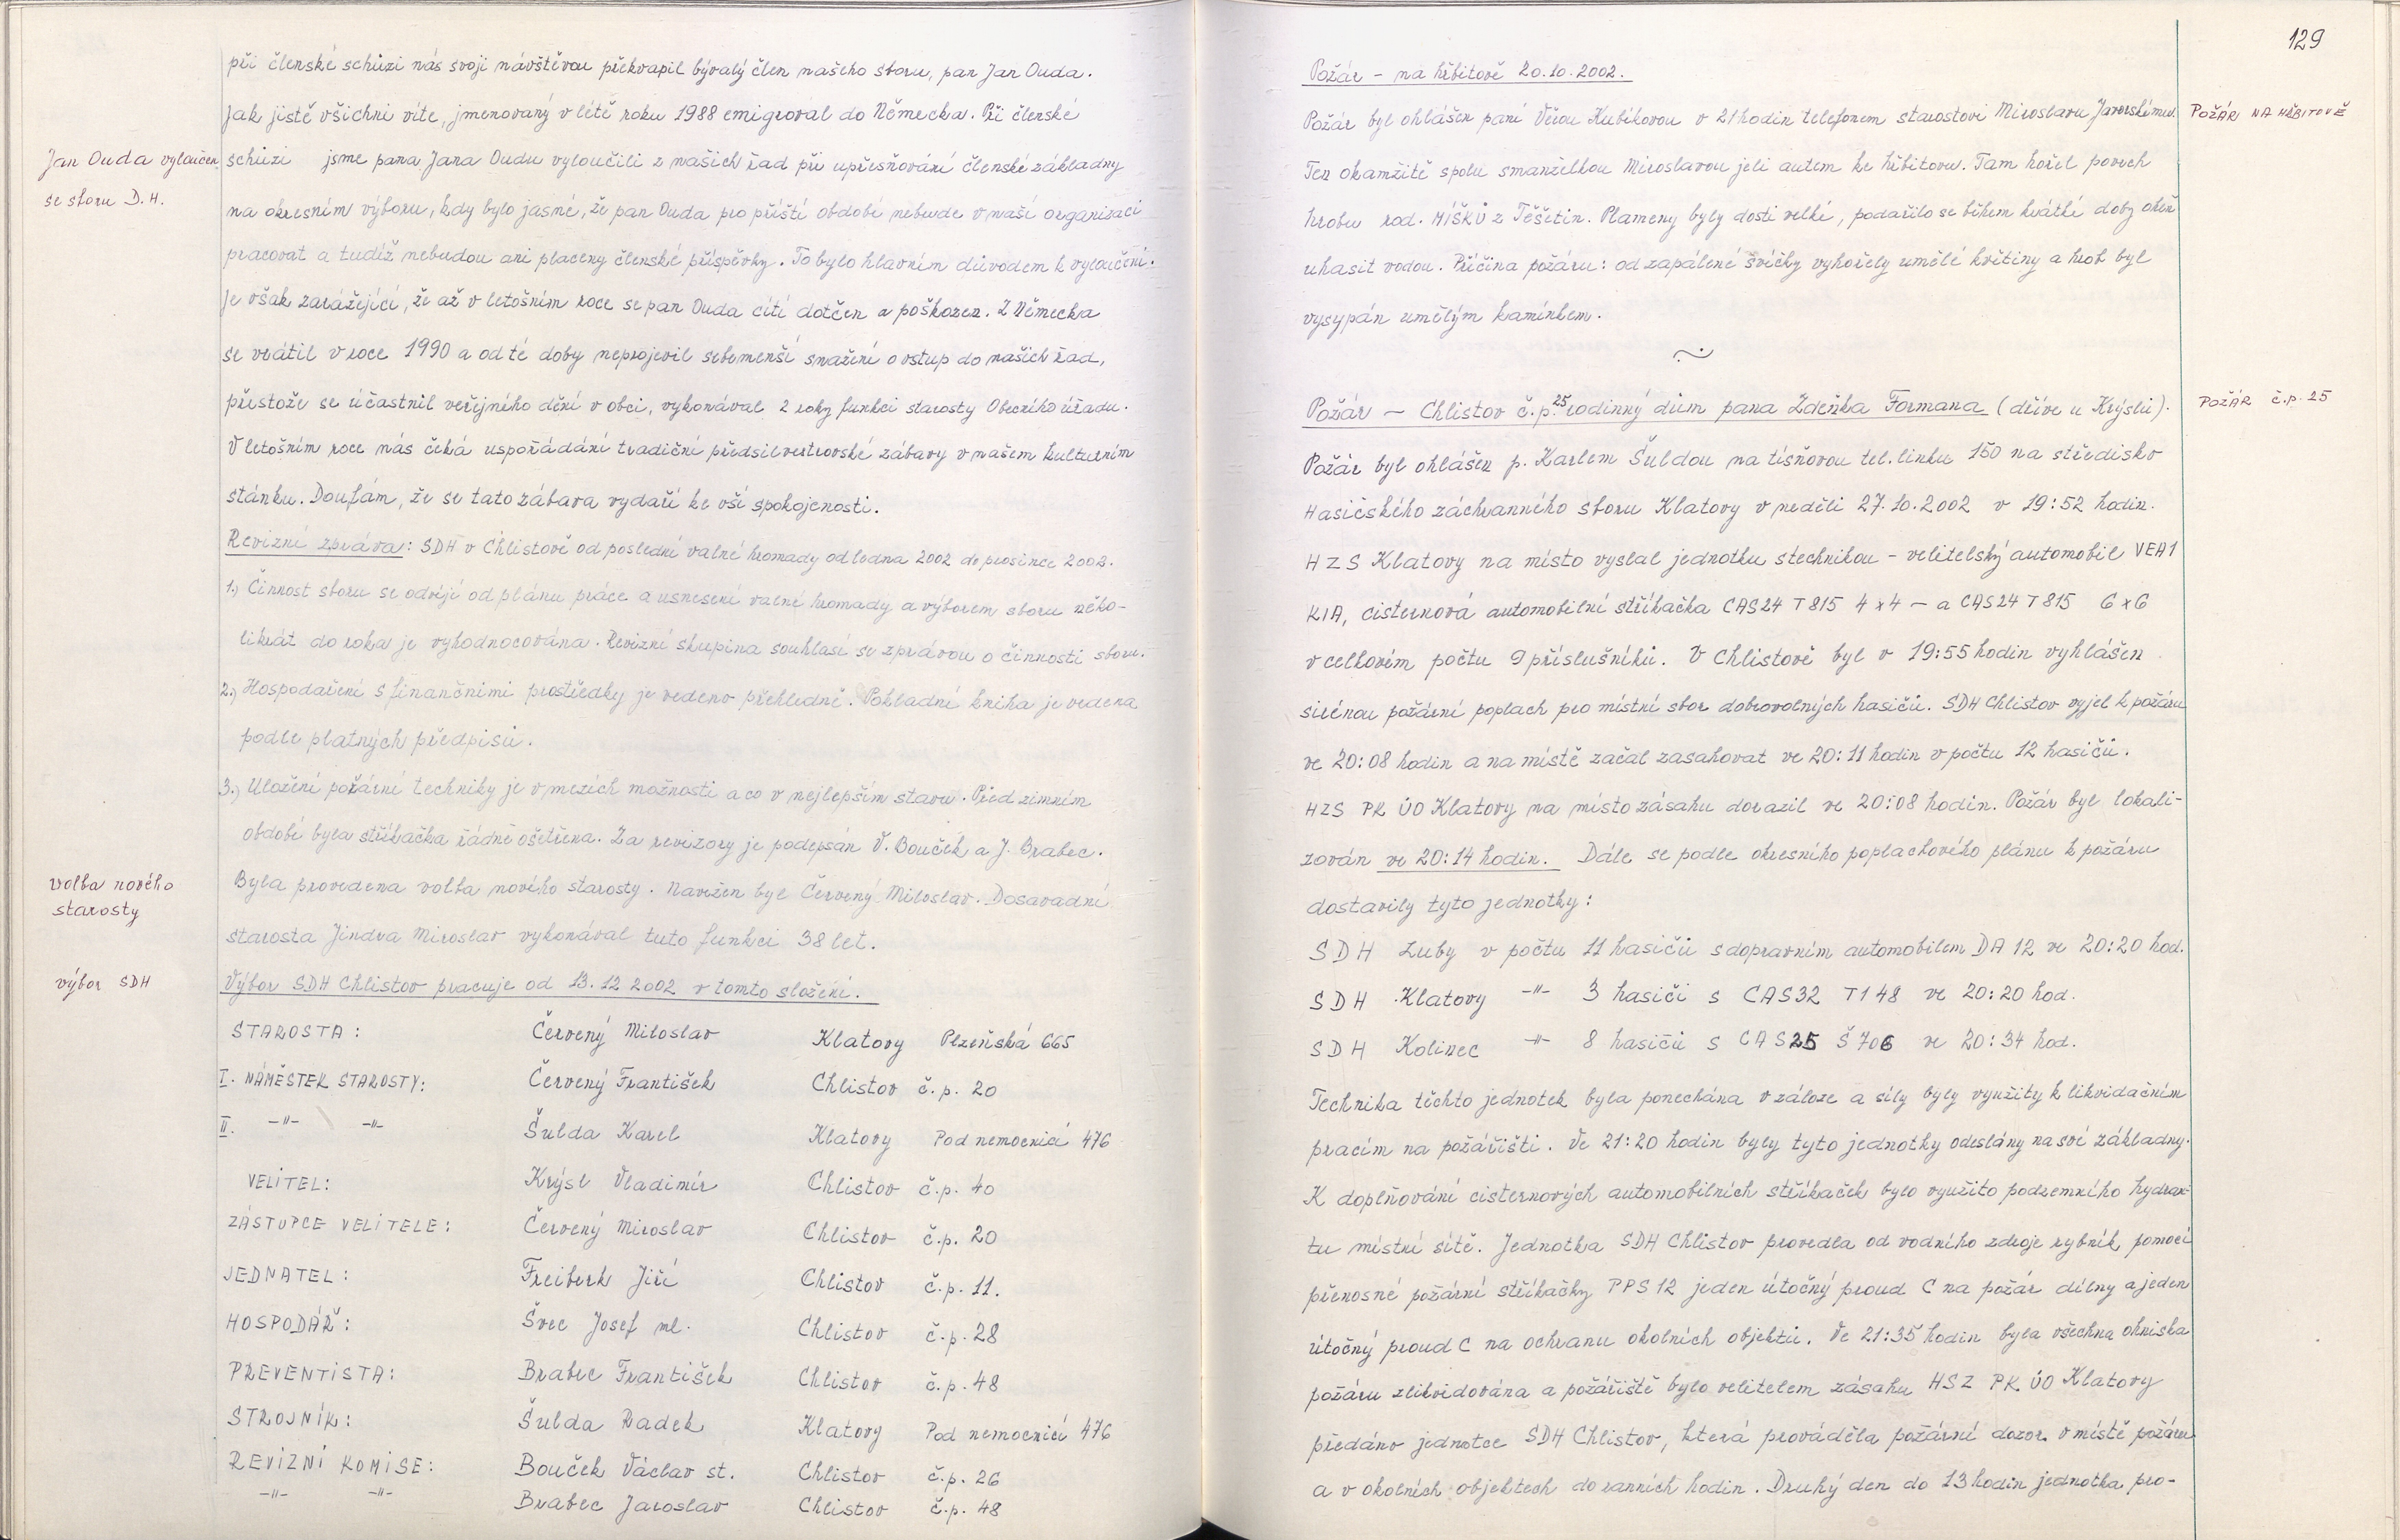 při členské schůzi nás svoji návštěvou překvapil bývalý člen našeho sboru, pan Jan Ouda.
Jak jistě všichni víte, jmenovaný v létě roku 1988 emigroval do Německa. Při členské
Jan Ouda vyloučen
se sboru D.H.
schůzi jsme pana Jana Oudu vyloučili z našich řad při upřesňování členské základny
na okresním výboru, kdy bylo jasné, že pan Ouda pro příští období nebude v naší organizaci
pracovat a tudíž nebudou ani placeny členské příspěvky. To bylo hlavním důvodem k vyloučení.
Je však zarážející, že až v letošním roce se pan Ouda cítí dotčen a poškozen. Z Německa
se vrátil v roce 1990 a od té doby neprojevil sebemenší snažení o vstup do našich řad,
přestože se účastnil veřejného dění v obci, vykonával 2 roky funkci starosty Obecního úřadu.
V letošním roce nás čeká uspořádání tradiční předsilvestrovské zábavy v našem kulturním
stánku. Doufám, že se tato zábava vydaří ke vší spokojenosti.
Revizní zpráva: SDH v Chlistově od poslední valné hromady od ledna 2002 do prosince 2002.
1.) Činnost sboru se odvíjí od plánu práce a usnesení valné hromady a výborem sboru něko-
likrát do roka je vyhodnocována. Revizní skupina souhlasí se zprávou o činnosti sboru.
2.) Hospodaření s finančními prostředky je vedeno přehledně. Pokladní kniha je vedena
podle platných předpisů.
3.) Uložení požární techniky je v mezích možnosti a co v nejlepším stavu. Před zimním
období byla stříkačka řádně ošetřena. Za revizory je podepsán V. Bouček a J. Brabec.
volba nového
starosty
Byla provedena volba nového starosty. Navržen byl Červený Miloslav. Dosavadní
starosta Jindra Miroslav vykonával tuto funkci 38 let.
výbor SDH
Výbor SDH Chlistov pracuje od 13.12 2002 v tomto složení.
STAROSTA: Červený Miloslav Klatovy Plzeňská 665
I. NÁMĚSTEK STAROSTY: Červený František Chlistov č.p. 20
II. -"- -"- Šulda Karel Klatovy Pod nemocnicí 476
VELITEL: Krýsl Vladimír Chlistov č.p. 40
ZÁSTUPCE VELITELE: Červený Miroslav Chlistov č.p. 20
JEDNATEL: Freiberk Jiří Chlistov č.p. 11.
HOSPODÁŘ: Švec Josef ml. Chlistov č.p. 28
PREVENTISTA: Brabec František Chlistov č.p. 48
STROJNÍK: Šulda Radek Klatovy Pod nemocnicí 476
REVIZNÍ KOMISE: Bouček Václav st. Chlistov č.p. 26
-"- -"- Brabec Jaroslav Chlistov č.p. 48
129
Požár - na hřbitově 20.10.2002.
Požár byl ohlášen paní Věrou Kubíkovou v 21 hodin telefonem starostovi Miroslavu
POŽÁR NA HŘBITOVĚ
Ten okamžitě spolu s manželkou Miroslavou jeli autem ke hřbitovu. Tam hořel povrch
hrobu rod. MÍŠKŮ z Těšetin. Plameny byly dosti velké, podařilo se během krátké doby oheň
uhasit vodou. Příčina požáru: od zapálené svíčky vyhořely umělé květiny a hrob byl
vysypán umělým kamínkem.
Požár - Chlistov č.p. 25 rodinný dům pana Zdeňka Formana (dříve u Krýslů).
POŽÁR č.p. 25
Požár byl ohlášen p. Karlem Šuldou na tísňovou tel. linku 150 na středisko
Hasičského záchranného sboru Klatovy v neděli 27.10.2002 v 19:52 hodin.
HZS Klatovy na místo vyslal jednotku s technikou - velitelský automobil VEA1
KIA, cisternová automobilní stříkačka CAS24 T815 4x4 - a CAS24 T815 6x6
v celkovém počtu 9 příslušníků. V Chlistově byl v 19:55 hodin vyhlášen
sirénou požární poplach pro místní sbor dobrovolných hasičů. SDH Chlistov vyjel k požáru
ve 20:08 hodin a na místě začal zasahovat ve 20:11 hodin v počtu 12 hasičů.
HZS PK ÚO Klatovy na místo zásahu dorazil ve 20:08 hodin. Požár byl lokali-
zován ve 20:14 hodin. Dále se podle okresního poplachového plánu k požáru
dostavily tyto jednotky:
SDH Luby v počtu 11 hasičů s dopravním automobilem DA 12 ve 20:20 hod.
SDH Klatovy -"- 3 hasiči s CAS32 T148 ve 20:20 hod.
SDH Kolinec -"- 8 hasičů s CAS25 Š706 ve 20:34 hod.
Technika těchto jednotek byla ponechána v záloze a síly byly využity k likvidačním
pracím na požářišti. Ve 21:20 hodin byly tyto jednotky odeslány na své základny.
K doplňování cisternových automobilních stříkaček bylo využito podzemního hydran-
tu místní sítě. Jednotka SDH Chlistov provedla od vodního zdroje rybník pomocí
přenosné požární stříkačky PPS 12 jeden útočný proud C na požár dílny a jeden
útočný proud C na ochranu okolních objektů. Ve 21:35 hodin byla všechna ohniska
požáru zlikvidována a požářiště bylo velitelem zásahu HSZ PK ÚO Klatovy
předáno jednotce SDH Chlistov, která prováděla požární dozor v místě požáru
a v okolních objektech do ranních hodin. Druhý den do 13 hodin jednotka pro-